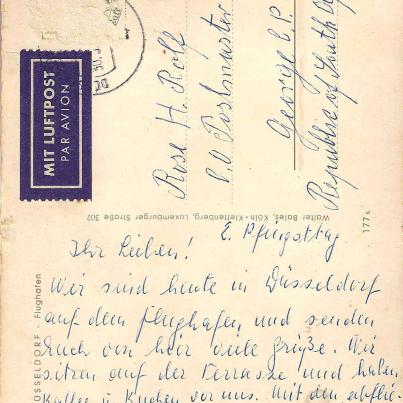 MIT LUFTPOST
PAR AVION
Rose H. Roll
c.o Postmaster
George C.P.
Republic of South
Walter Bales, Köln-Klettenberg, Luxemburger Straße 302
177c
DÜSSELDORF Flughafen
2. Pfingsttag
Ihr Lieben!
Wir sind heute in Düsseldorf
auf dem Flughafen und senden
Euch von hier viele Grüße. Wir
sitzen auf der Terrasse und haben
Kaffee u. Kuchen vor uns. Mit den